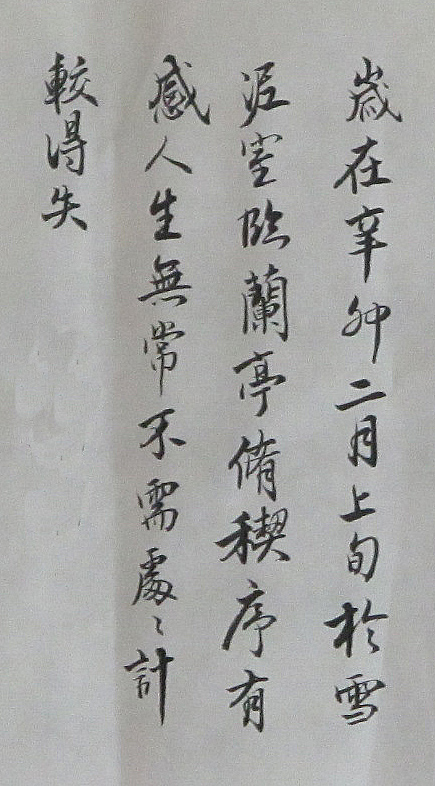 歲在辛卯二月上旬於雪
泥室臨蘭亭脩稧序有
感人生無常不需處〻計
較得失